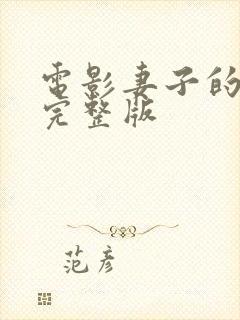 電影妻子的
完整版
范彦